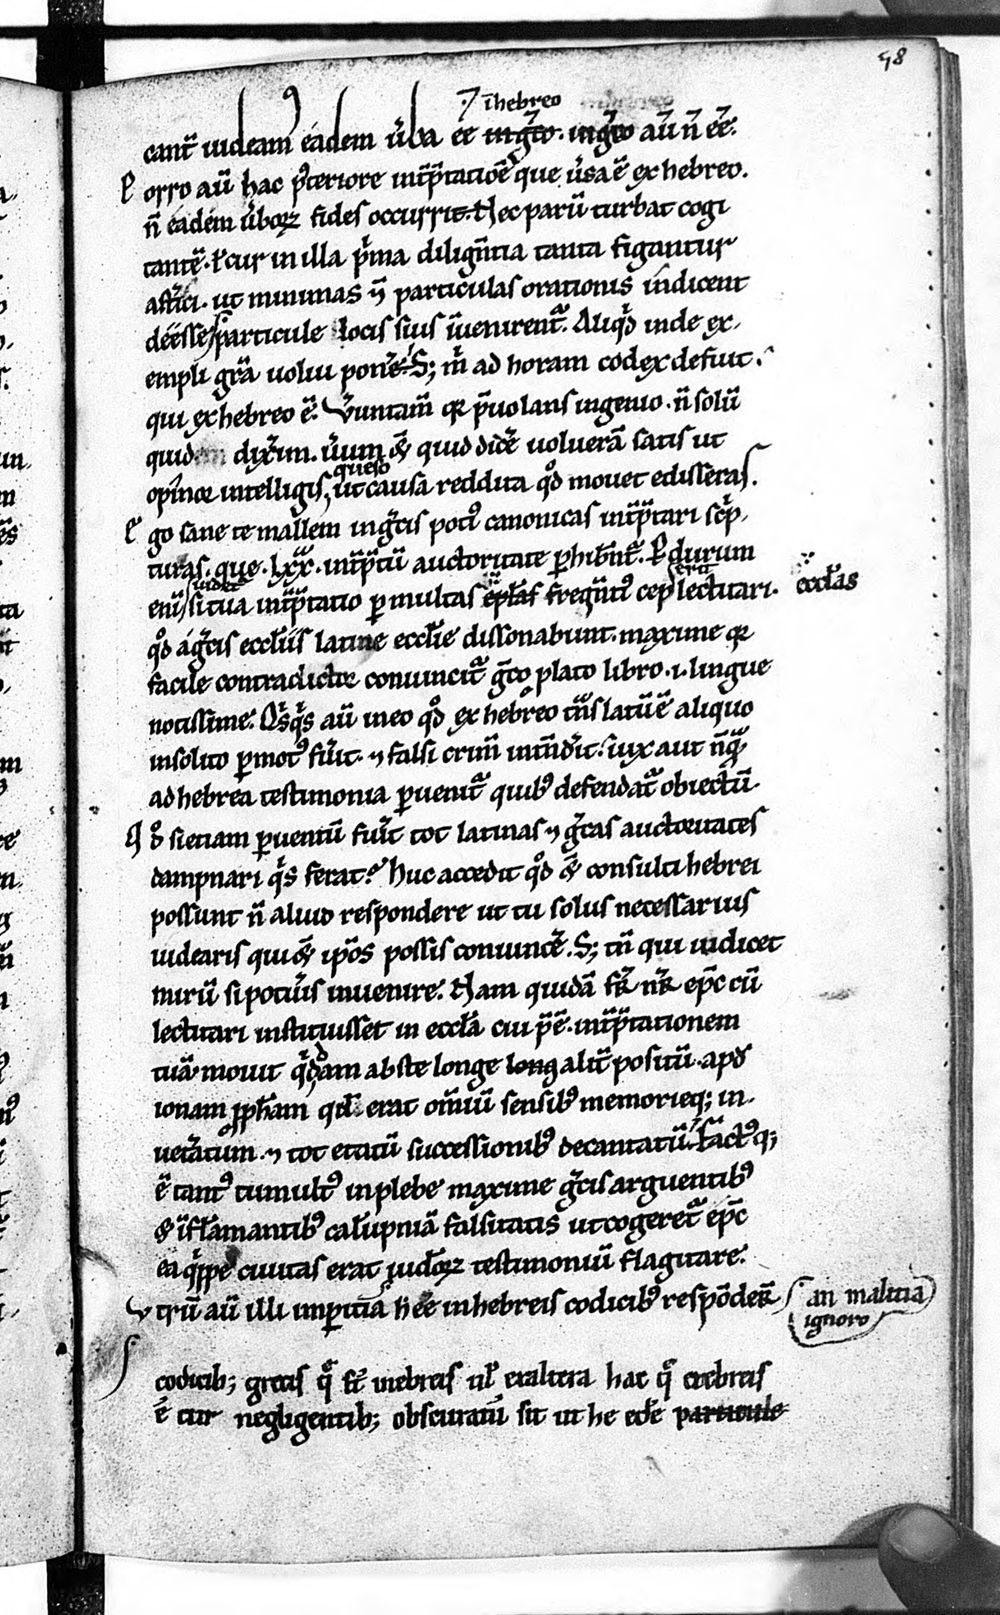 58
⁊ ī hebreo
cant̄ uideam᷒ eadem ūba eē in gͥco. in gͥco aū n̄ eē.
Porro aū hac ꝑteriore int̄p̄tatiōe que ūsa ē ex hebreo.
n̄ eadem ūboꝝ fides occurrit. Hec parū turbat cogi
tantē. ł cur in illa pͥma dilign̄tia tanta figantur
astͥci. ut minimas ⁊ particulas orationis indicent
deesse particule locis suis īuenirent᷑. Aliqͥd inde ex
empli grā uolui ponͤe. S; m̄ ad horam codex defuit.
qui ex hebreo ē. Ūuntam̄ qꝛ p̄uolans ingenio. n̄ solū
quid dix̄im. ūum & quid dicͤe uoluerā satis ut
queso
opinoꝛ intelligis, ut causa reddita qͦd mouet edisseras.
Ego sane te mallem in gͥcis poci᷒ canonicas int̄p̄tari scͥp
turas. que .lxx. int̄p̄tū auctoritate ꝑhibn̄t᷑. Pdurum
enī si tua int̄p̄tatio ꝑ multas fregn̄ti᷒ cep lectitari. eccłas
qͦd a gͥcis eccłiis latine eccłie dissonabunt. maxime qꝛ
facile contradictoꝛ conuincit᷑ gͥco plato libro .i. lingue
notissime. Qͥsqͥs aū in eo qͦd ex hebreo tn̄slatū ē aliquo
insolito ꝑmot᷒ fūit. ⁊ falsi crim̄ intn̄dit. uix aut n̄qͣ
ad hebrea testimonia ꝑuenit᷑ quib᷒ defendat᷑ obiectū.
Qͦd si etiam ꝑuentū fūit tot latinas ⁊ gͥcas auctoritates
dampnari qͥs ferat? Huc accedit qͦd & consulti hebrei
possunt n̄ aliud respondere ut tu solus necessarius
uidearis qui & ip̄os possis conuincͤe. S; tn̄ qui iudicet
mirū si potūis inuenire. Nam quidā fr̄ nr̄ ep̄c cū
lectitari instituisset in ecclā cui p̄ē. int̄p̄tationem
tuā mouit qͥddam abs te longe long alit̄ positū apd
ionam ꝓpħam erat om̄iū sensib᷒ memorieq; in
ueͭatum. ⁊ tot etatū successionib᷒ decantatū. fact᷒q;
ē tant᷒ tumult᷒ in plebe maxime gͥcis arguentib᷒
& īflamantib᷒ calūpniā falsitatis ut cogeret᷑ ep̄c
ea qͥppe ciuitas erat iudoꝝ testimoniū flagitare.
Vtrū aū illi imꝑitia h̄ eē in hebreis codicib᷒ respōder̄
an malitia
ignoro
codicib; grecis qͣ ebreis ul̄ hac qͣ ebreis
ē cur negligentib; obscuratū sit ut he particule